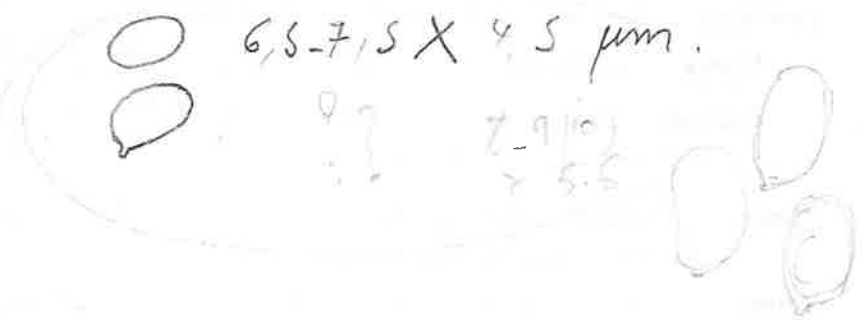 6,5-7,5 X 4,5 μm.
7-9(10)
x 5.5